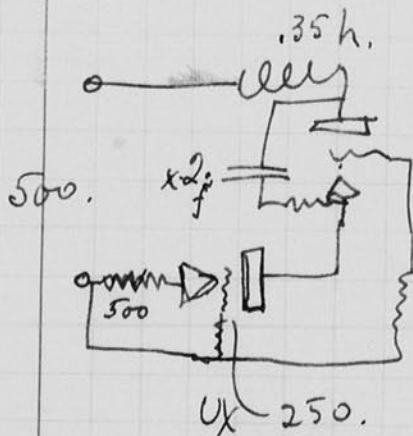 .35 h.
500.
x2
f
500
UX 250.